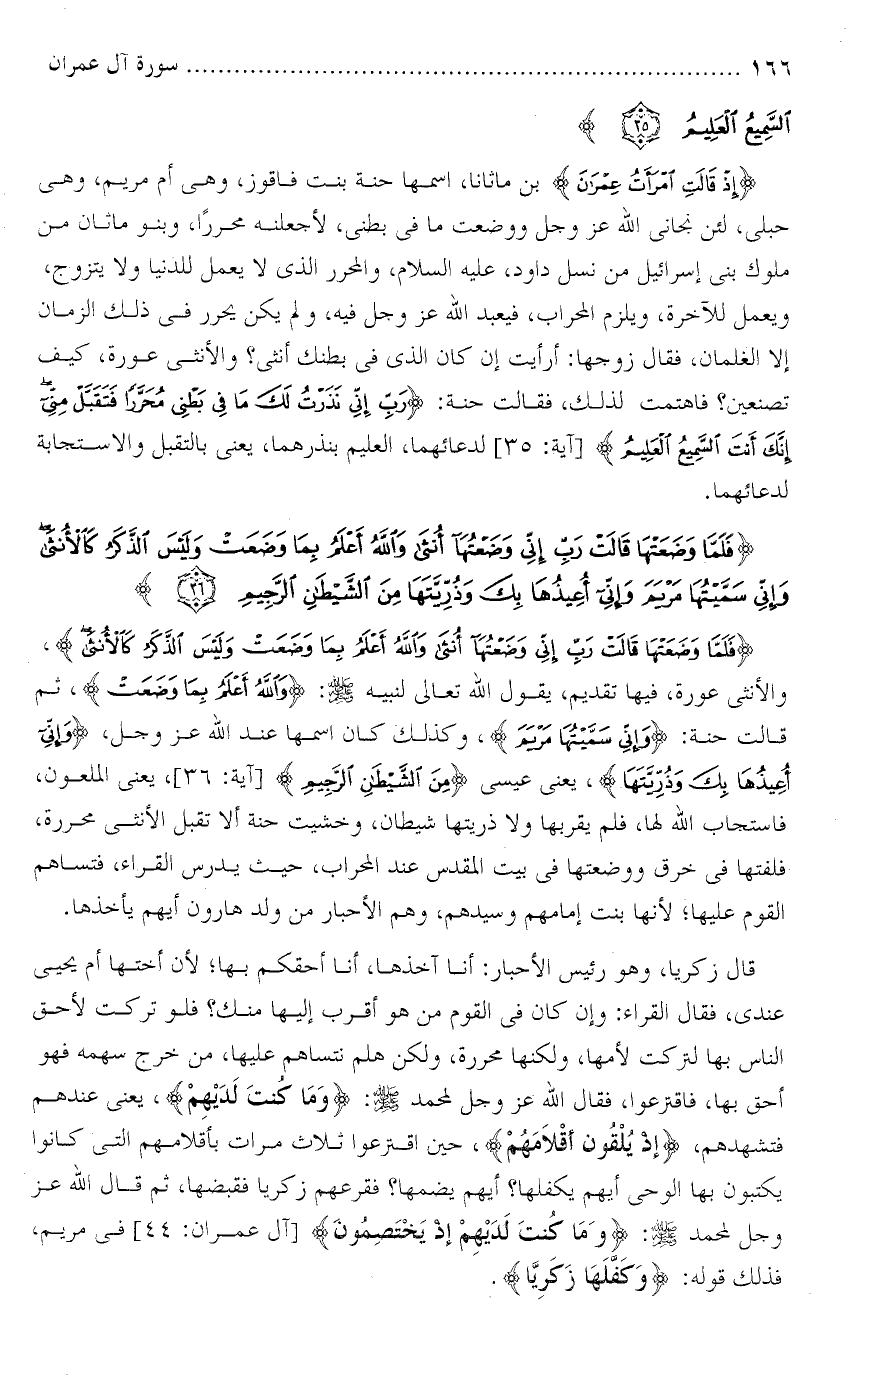 ١٦٦ ........................................................................ سورة آل عمران
ٱلسَّمِيعُ ٱلْعَلِيمُ ۝٣٥ ﴾
﴿إِذْ قَالَتِ ٱمْرَأَتُ عِمْرَٰنَ﴾ بن ماثانا، اسمها حنة بنت فاقوز، وهى أم مريم، وهى
حبلى، لئن نجانى الله عز وجل ووضعت ما فى بطنى، لأجعلنه محررًا، وبنو ماثان من
ملوك بنى إسرائيل من نسل داود، عليه السلام، والمحرر الذى لا يعمل للدنيا ولا يتزوج،
ويعمل للآخرة، ويلزم المحراب، فيعبد الله عز وجل فيه، ولم يكن يحرر فى ذلك الزمان
إلا الغلمان، فقال زوجها: أرأيت إن كان الذى فى بطنك أنثى؟ والأنثى عورة، كيف
تصنعين؟ فاهتمت لذلك، فقالت حنة: ﴿رَبِّ إِنِّي نَذَرْتُ لَكَ مَا فِي بَطْنِي مُحَرَّرًا فَتَقَبَّلْ مِنِّيٓۖ
إِنَّكَ أَنتَ ٱلسَّمِيعُ ٱلْعَلِيمُ﴾ [آية: ٣٥] لدعائهما، العليم بنذرهما، يعنى بالتقبل والاستجابة
لدعائهما.
﴿فَلَمَّا وَضَعَتْهَا قَالَتْ رَبِّ إِنِّي وَضَعْتُهَآ أُنثَىٰ وَٱللَّهُ أَعْلَمُ بِمَا وَضَعَتْ وَلَيْسَ ٱلذَّكَرُ كَٱلْأُنثَىٰۖ
وَإِنِّي سَمَّيْتُهَا مَرْيَمَ وَإِنِّيٓ أُعِيذُهَا بِكَ وَذُرِّيَّتَهَا مِنَ ٱلشَّيْطَٰنِ ٱلرَّجِيمِ ۝٣٦ ﴾
﴿فَلَمَّا وَضَعَتْهَا قَالَتْ رَبِّ إِنِّي وَضَعْتُهَآ أُنثَىٰ وَٱللَّهُ أَعْلَمُ بِمَا وَضَعَتْ وَلَيْسَ ٱلذَّكَرُ كَٱلْأُنثَىٰۖ﴾،
والأنثى عورة، فيها تقديم، يقول الله تعالى لنبيه ﷺ: ﴿وَٱللَّهُ أَعْلَمُ بِمَا وَضَعَتْ﴾، ثم
قالت حنة: ﴿وَإِنِّي سَمَّيْتُهَا مَرْيَمَ﴾، وكذلك كان اسمها عند الله عز وجل، ﴿وَإِنِّيٓ
أُعِيذُهَا بِكَ وَذُرِّيَّتَهَا﴾، يعنى عيسى ﴿مِنَ ٱلشَّيْطَٰنِ ٱلرَّجِيمِ﴾ [آية: ٣٦]، يعنى الملعون،
فاستجاب الله لها، فلم يقربها ولا ذريتها شيطان، وخشيت حنة ألا تقبل الأنثى محررة،
فلفتها فى خرق ووضعتها فى بيت المقدس عند المحراب، حيث يدرس القراء، فتساهم
القوم عليها؛ لأنها بنت إمامهم وسيدهم، وهم الأحبار من ولد هارون أيهم يأخذها.
قال زكريا، وهو رئيس الأحبار: أنا آخذها، أنا أحقكم بها؛ لأن أختها أم يحيى
عندى، فقال القراء: وإن كان فى القوم من هو أقرب إليها منك؟ فلو تركت لأحق
الناس بها لتركت لأمها، ولكنها محررة، ولكن هلم نتساهم عليها، من خرج سهمه فهو
أحق بها، فاقترعوا، فقال الله عز وجل لمحمد ﷺ: ﴿وَمَا كُنتَ لَدَيْهِمْ﴾، يعنى عندهم
فتشهدهم، ﴿إِذْ يُلْقُون أَقْلَامَهُمْ﴾، حين اقترعوا ثلاث مرات بأقلامهم التى كانوا
يكتبون بها الوحى أيهم يكفلها؟ أيهم يضمها؟ فقرعهم زكريا فقبضها، ثم قال الله عز
وجل لمحمد ﷺ: ﴿وَمَا كُنتَ لَدَيْهِمْ إِذْ يَخْتَصِمُونَ﴾ [آل عمران: ٤٤] فى مريم،
فذلك قوله: ﴿وَكَفَّلَهَا زَكَرِيَّا﴾.